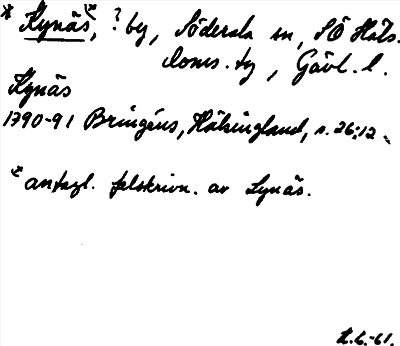 * Kynäs*, ? by, Söderala sn, SÖ Häls.
doms. tg, Gävl. l.
Kynäs
1790-91 Bringéus, Hälsingland, s. 26:12.
* antagl. felskrivn. av Lynäs.
-61.